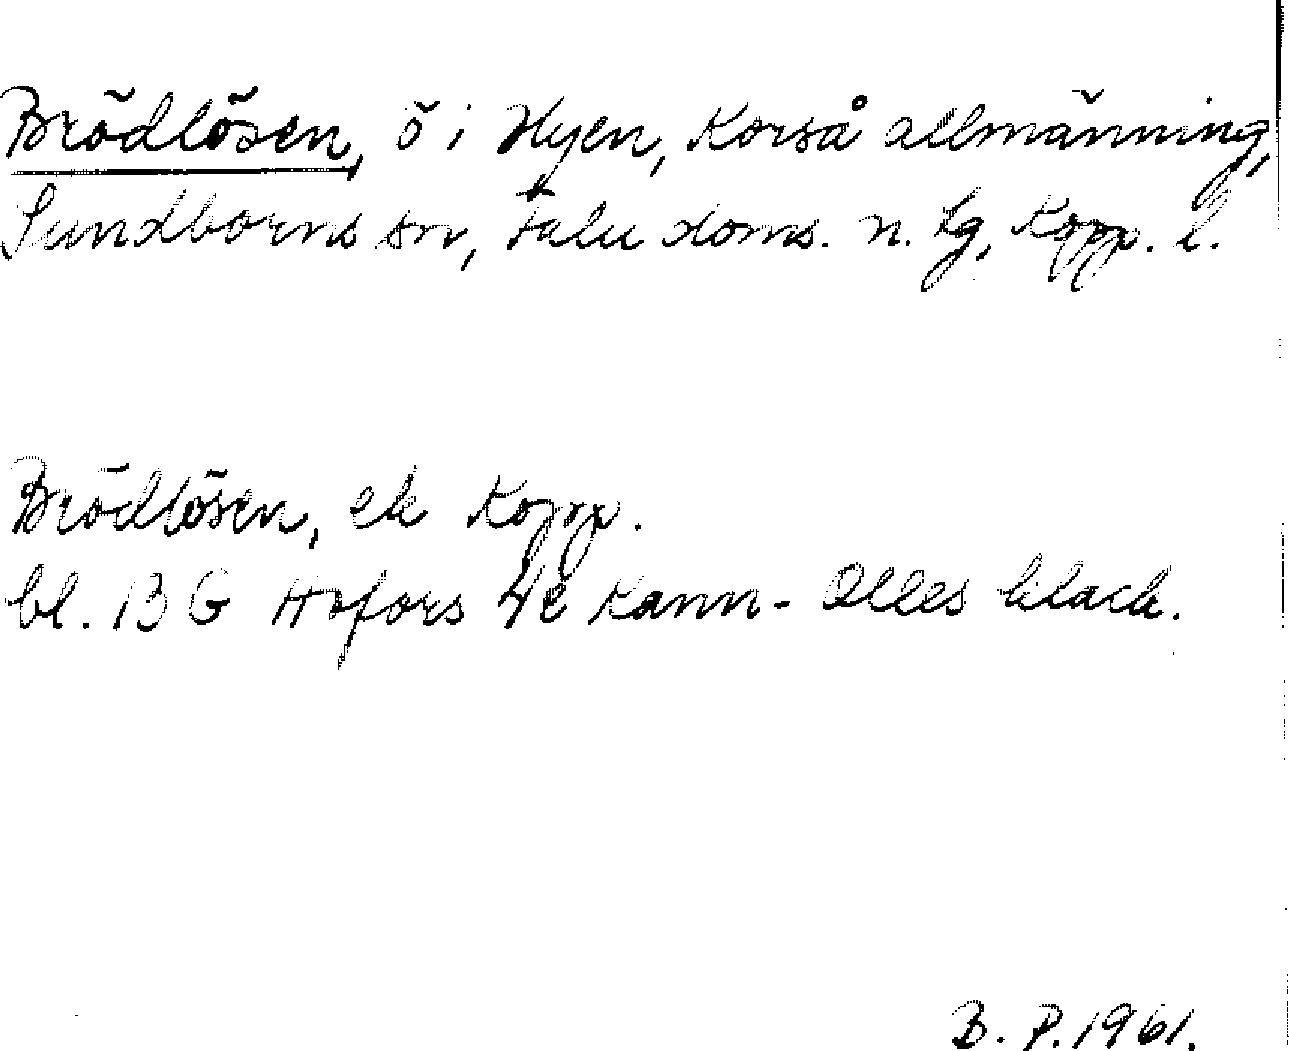 Brödlösen, ö i Hyen, Korså allmänning,
Sundborns sn, Falu doms. n. tg, Kopp. l.
Brödlösen, ek Kopp.
bl. 13 G Hofors 4c Kann-Olles black.
B. P. 1961.